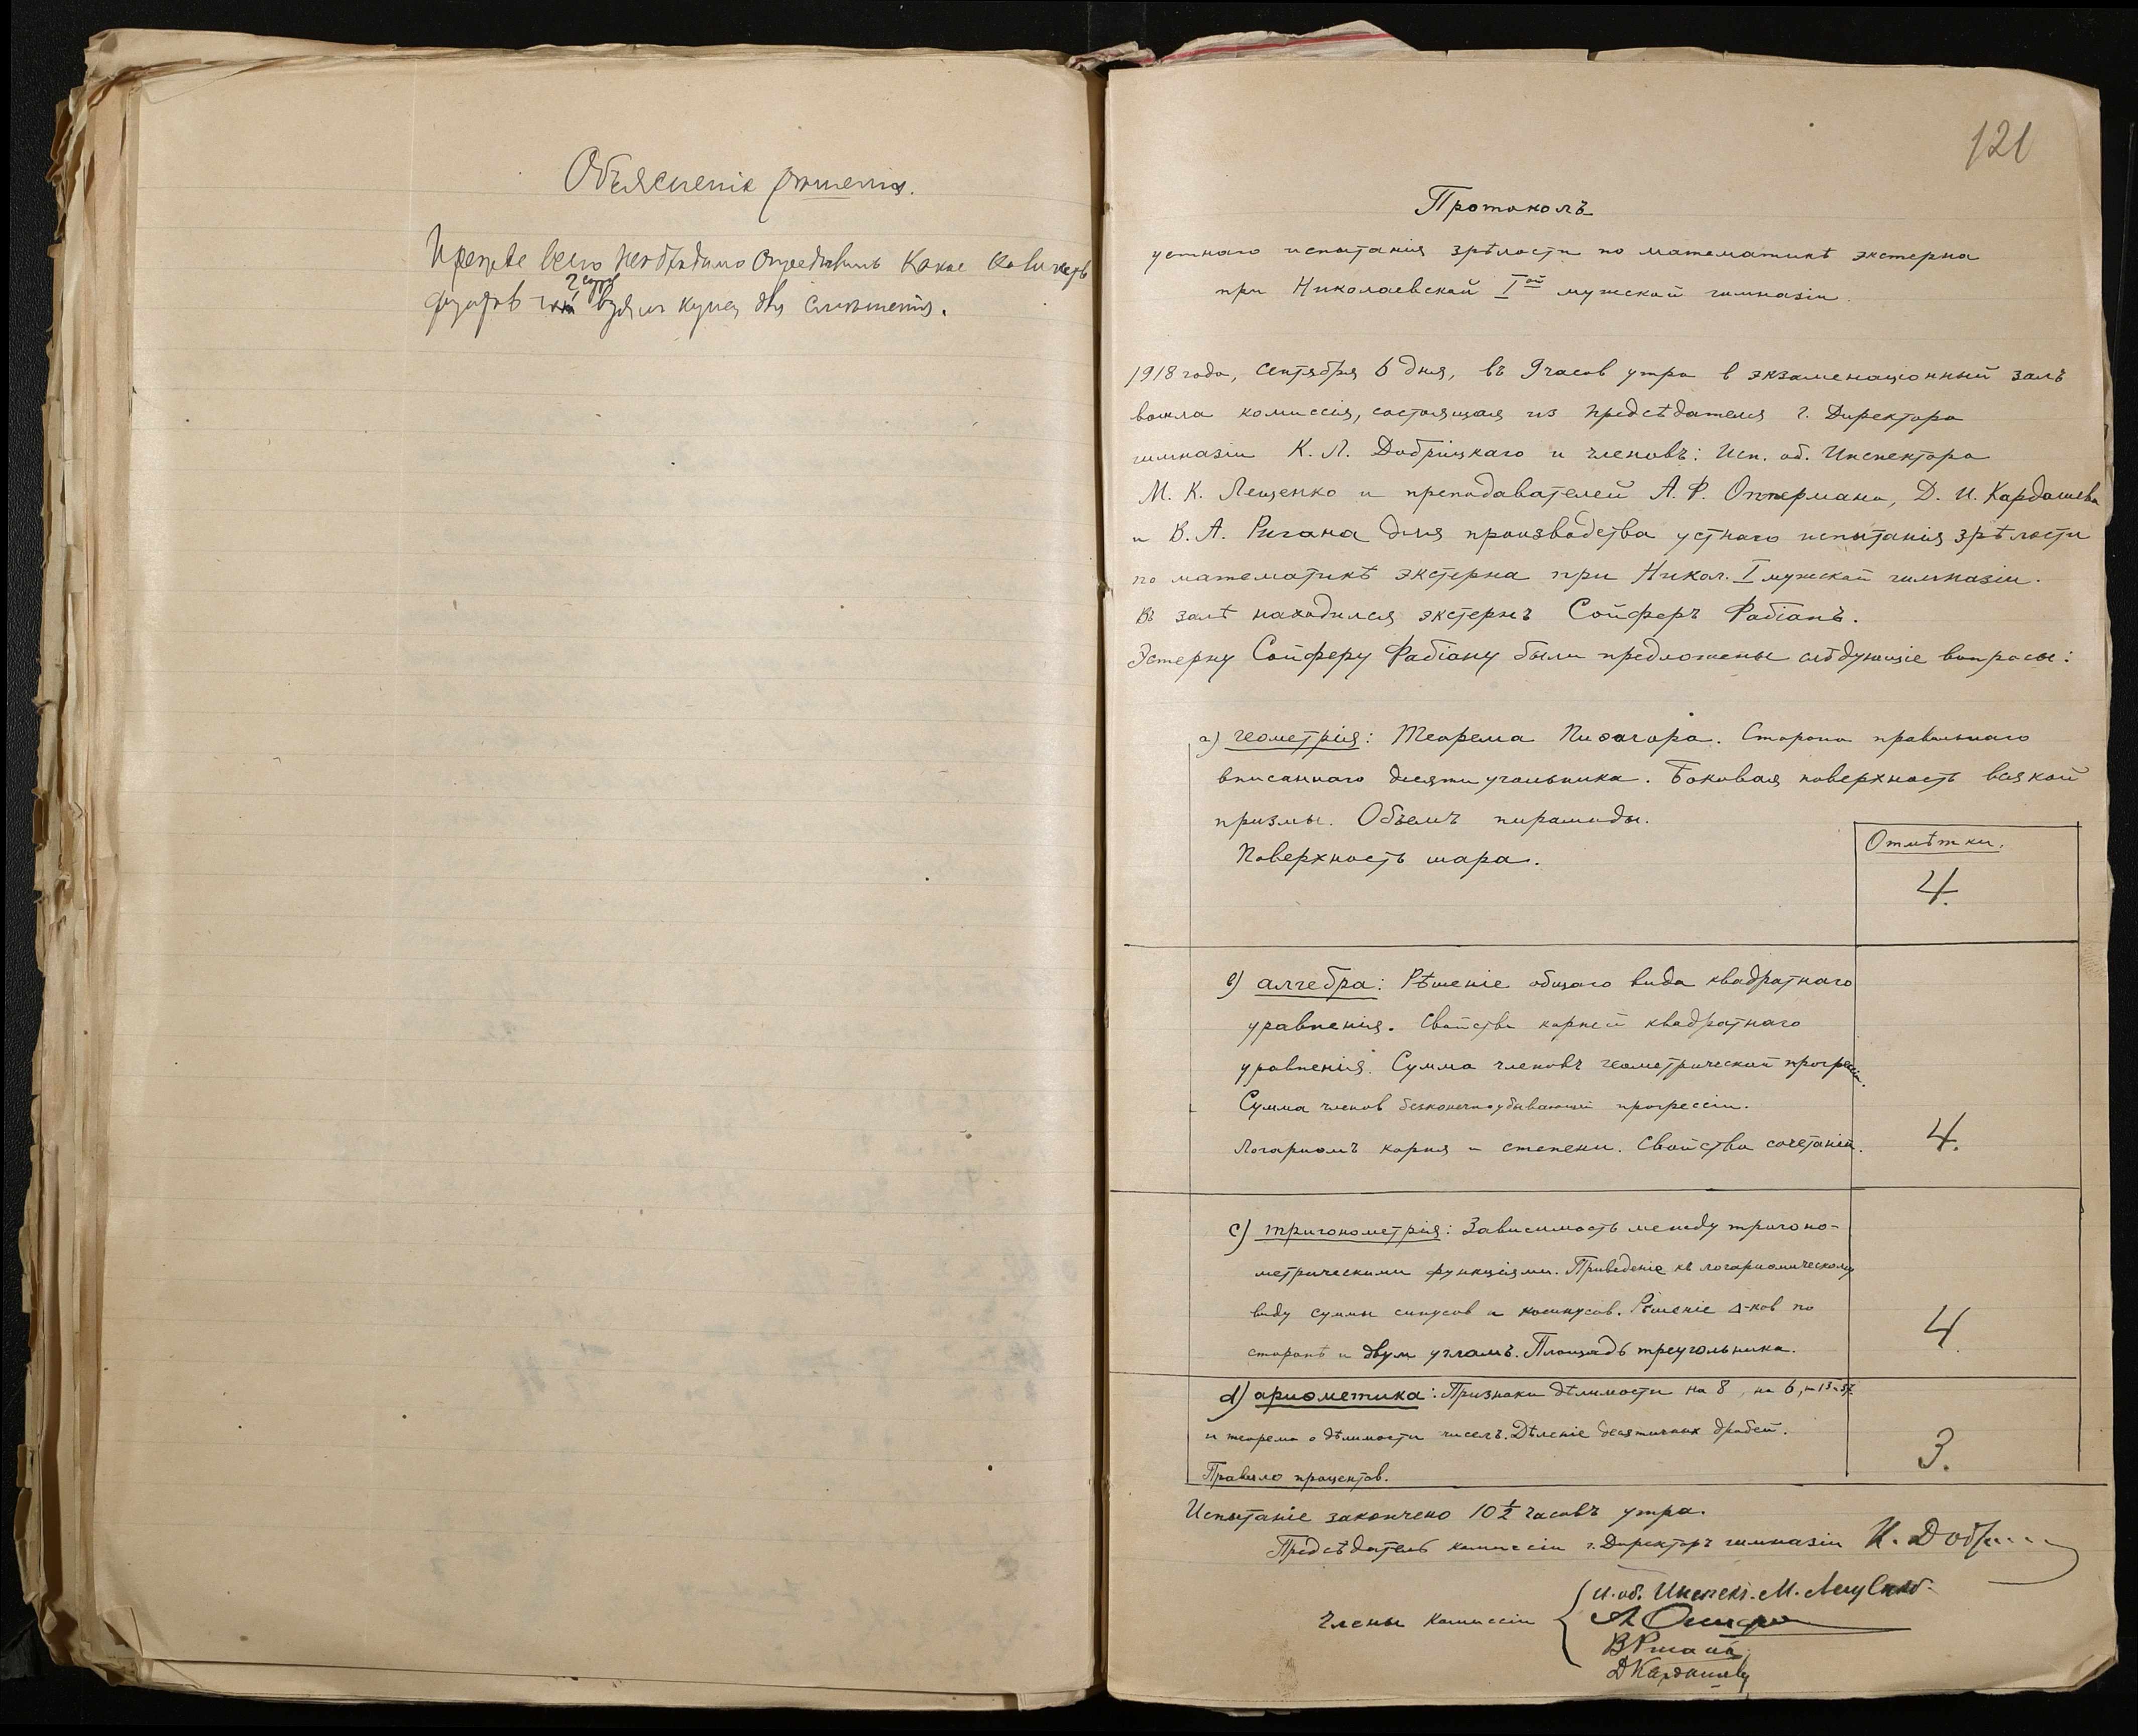 Объясненіе рѣшенія.
Прежде всего необходимо опредѣлить какое количеств
2 сорта
фунтов взялъ купец для смѣшенія.
121
Протоколъ
устнаго испытанія зрѣлости по математикѣ экстерна
при Николаевской Iой мужской гимназіи.
1918 года, сентября 6 дня, въ 9 часов утра в экзаменаціонный залъ
вошла комиссія, состоящая из предсѣдателя г. Директора
гимназіи К. Л. Добрицкаго и членовъ: Исп. об. Инспектора
М. К. Лещенко и преподавателей А. Ф. Оппермана, Д. И. Кардашева
и В. А. Ригана для производства устнаго испытанія зрѣлости
по математикѣ экстерна при Никол. I мужской гимназіи.
Въ залѣ находился экстернъ Сойферъ Фабіанъ.
Эстерну Сойферу Фабіану были предложены слѣдующіе вопросы:
а) геометрія: Теорема Пиѳагора. Сторона правильнаго
вписаннаго десятиугольника. Боковая поверхность всякой
призмы. Объемъ пирамиды.
Поверхность шара.
Отмѣтки.
4.
в) алгебра: Рѣшеніе общаго вида квадратнаго
уравненія. Свойства корней квадратнаго
уравненія. Сумма членовъ геометрической прогрессіи.
Сумма членов безконечноубывающей прогрессіи.
Логариѳмъ корня и степени. Свойства сочетаній.
4.
с) тригонометрія: Зависимость между тригоно-
метрическими функціями. Приведеніе къ логариѳмическому
виду суммы синусов и косинусов. Рѣшеніе Δ-ков по
сторонѣ и двум угламъ. Площадь треугольника.
4.
d) ариѳметика: Признаки дѣлимости на 8, на 6,
и теорема о дѣлимости чиселъ. Дѣленіе десятичных дробей.
Правило процентов.
3.
Испытаніе закончено 10 1/2 часовъ утра.
Предсѣдатель комиссіи г. Директоръ гимназіи К. Доб
Члены комиссіи
И. об. Инспект. М. Лещенко
А Опперман
В Риганъ
Д Кардашевъ